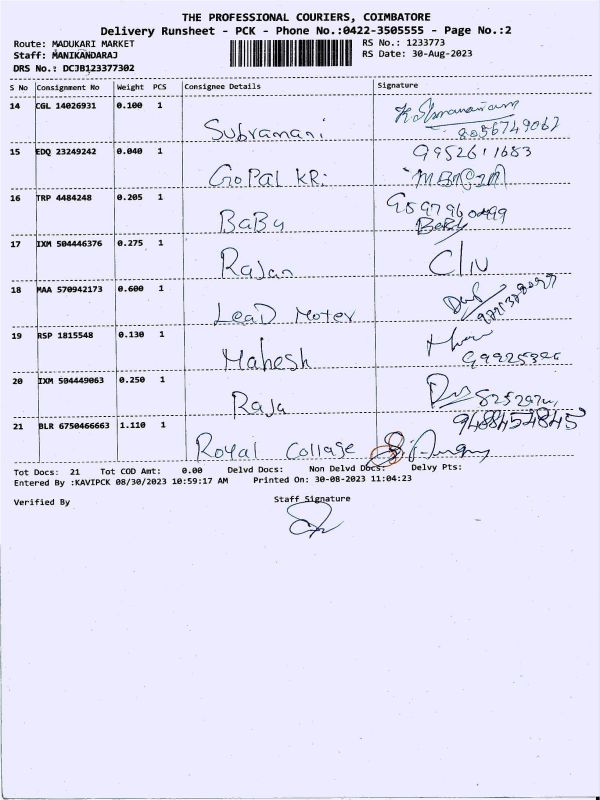 THE PROFESSIONAL COURIERS, COIMBATORE
Delivery Runsheet - PCK - Phone No.:0422-3505555 - Page No.:2
Route: MADUKARI MARKET RS No.: 1233773
Staff: MANIKANDARAJ RS Date: 30-Aug-2023
DRS No.: DCJB123377302
S No Consignment No Weight PCS Consignee Details Signature
14 CGL 14026931 0.100 1
Subramani 8056749067
15 EDQ 23249242 0.040 1 9952611683
GoPal KR:
16 TRP 4484248 0.205 1
BaBu Babu
17 IXM 504446376 0.275 1
Rajan C/N
18 MAA 570942173 0.600 1
LeaD Moter
19 RSP 1815548 0.130 1
Mahesh
20 IXM 504449063 0.250 1
Raja
21 BLR 6750466663 1.110 1 9488454845
Royal Collage
Tot Docs: 21 Tot COD Amt: 0.00 Delvd Docs: Non Delvd Docs: Delvy Pts:
Entered By :KAVIPCK 08/30/2023 10:59:17 AM Printed On: 30-08-2023 11:04:23
Verified By Staff Signature